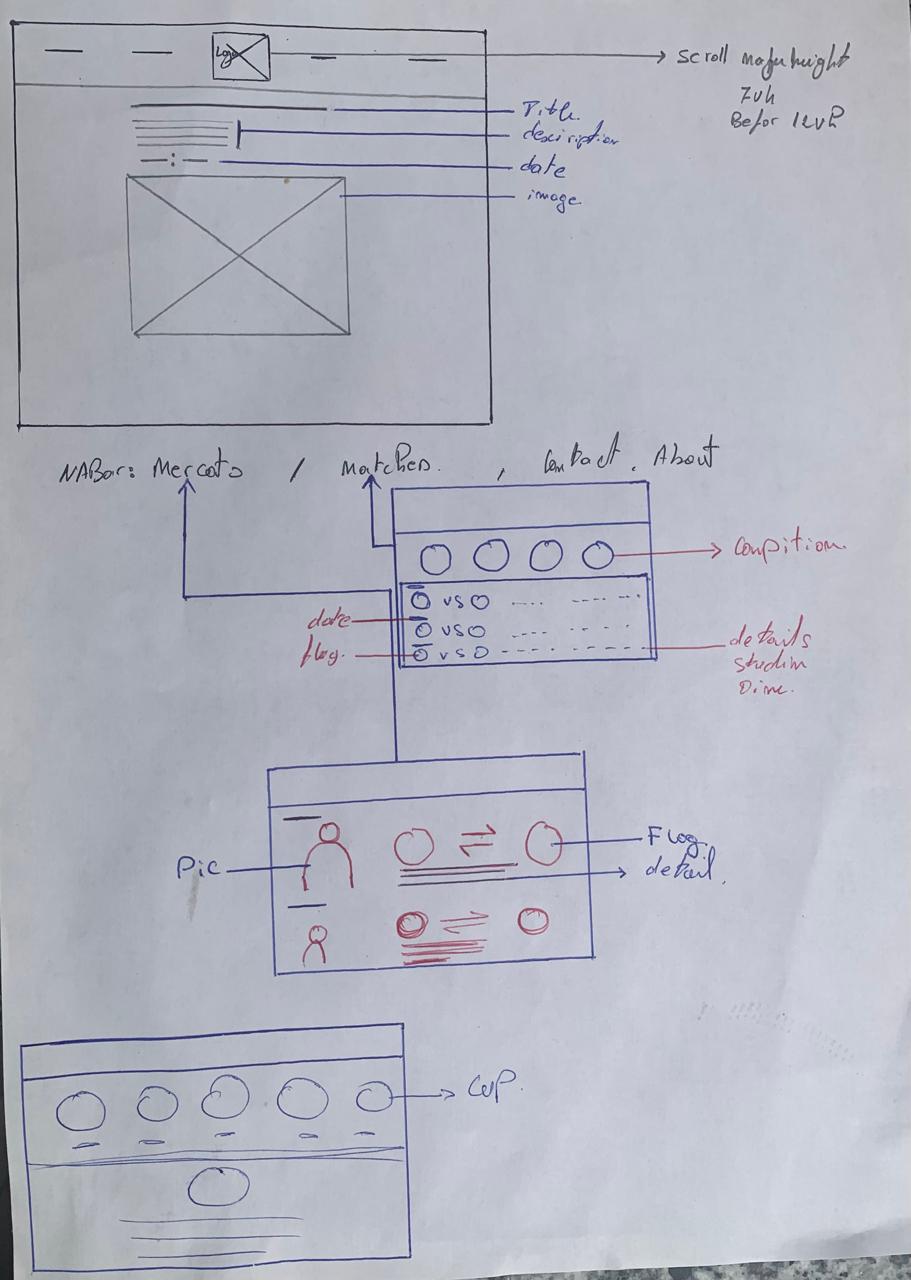 Logo
scroll
7vh
Befor 12vh
Title
desciription
date
image
NABar: Mercato / Matches. , Contact. About
Compition.
vs
date
vs
flog.
vs
details
Studim
Pic
Flog.
detail.
CUP.